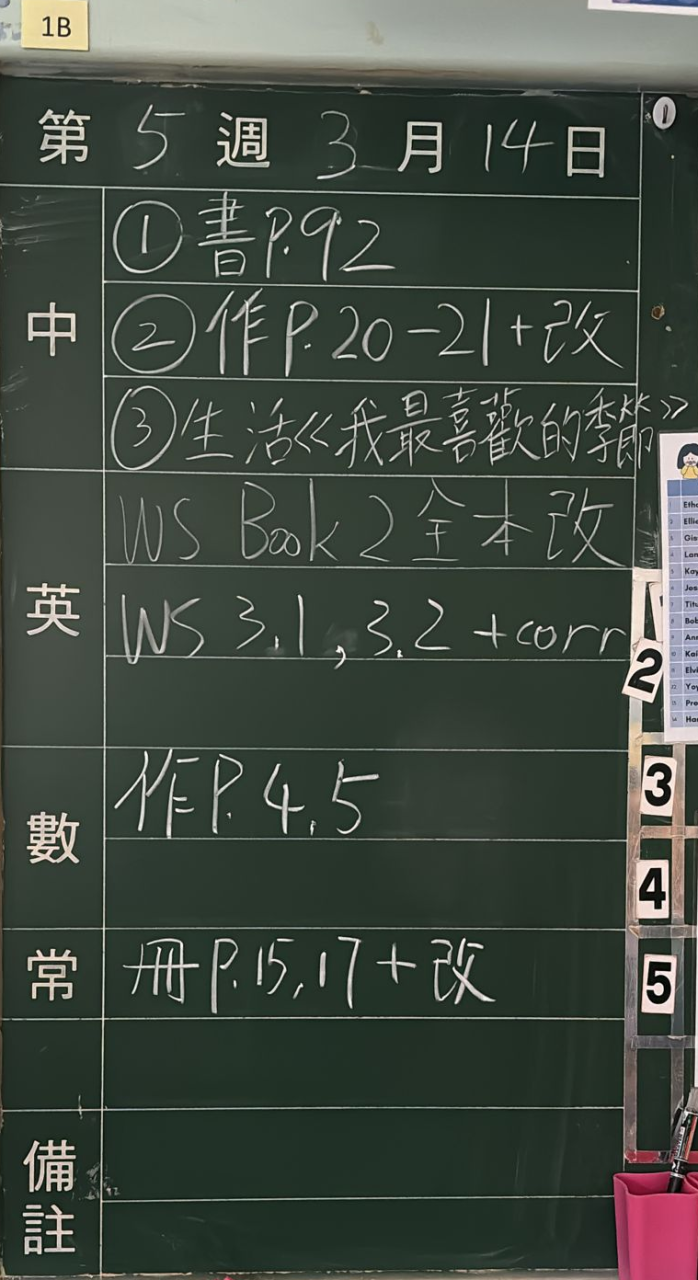 1B
第 5 週 3 月 14 日
中
①書P.92
②作P.20-21+改
③生活《我最喜歡的季節》
英
WS Book 2 全本改
WS 3.1, 3.2 +corr
數
作P.4,5
常
冊P.15,17+改
備註
1
2
3
4
5